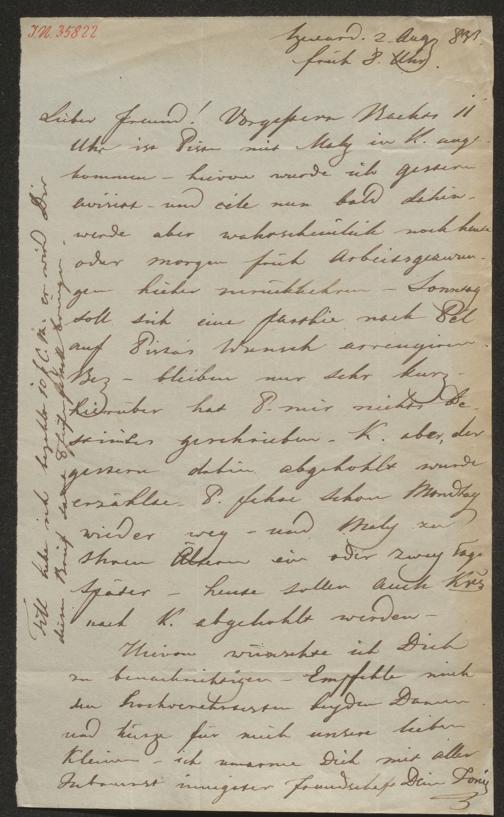 I.N. 35822
2. Aug 838.
früh 8. Uhr.
Lieber Freund! Vorgestern Nachts 11
Uhr ist Pissa mit Maly in K. ange-
kommen – hievon wurde ich gestern
avisirt – und eile nun bald dahin –
werde aber wahrscheinlich noch heute
oder morgen früh Arbeitsgezwun-
gen hieher zurückkehren – Sonntag
soll sich eine Parthie nach Pel
auf Pissas Wunsch arrengiren.
– bleiben nur sehr kurz –
hierüber hat P. mir nichts Be-
stimtes geschrieben – K. aber, der
gestern dahin abgehohlt wurde
erzählte – P. fahre schon Montag
wieder weg – und Maly zu
Ihren Ältern ein oder zwey Tage
später – heute sollen auch
nach K. abgehohlt werden –
Hievon wünschte ich Dich
zu benachrichtigen – Empfehle mich
den Hochverehrtesten beyden Damen
und küsse für mich unsere lieben
Kleinen – ich umarme Dich mit aller
Inbrunst innigster Freundschaft Dein
habe ich bezahlt 10 f C. M. er wird Dir
diesen Brief bringen.